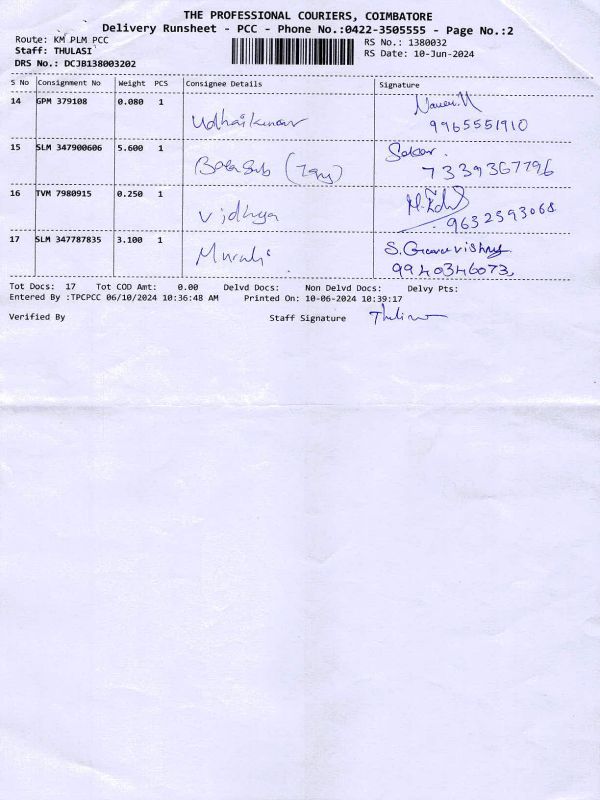 THE PROFESSIONAL COURIERS, COIMBATORE
Delivery Runsheet - PCC - Phone No.:0422-3505555 - Page No.:2
Route: KM PLM PCC
RS No.: 1380032
Staff: THULASI
RS Date: 10-Jun-2024
DRS No.: DCJB138003202
S No Consignment No Weight PCS Consignee Details Signature
14 GPM 379108 0.080 1 Udhaikumar
9965551910
15 SLM 347900606 5.600 1
7339367796
16 TVM 7980915 0.250 1 Vidhya
9632593068
17 SLM 347787835 3.100 1 Murali
9940346073
Tot Docs: 17 Tot COD Amt: 0.00 Delvd Docs: Non Delvd Docs: Delvy Pts:
Entered By :TPCPCC 06/10/2024 10:36:48 AM Printed On: 10-06-2024 10:39:17
Verified By Staff Signature